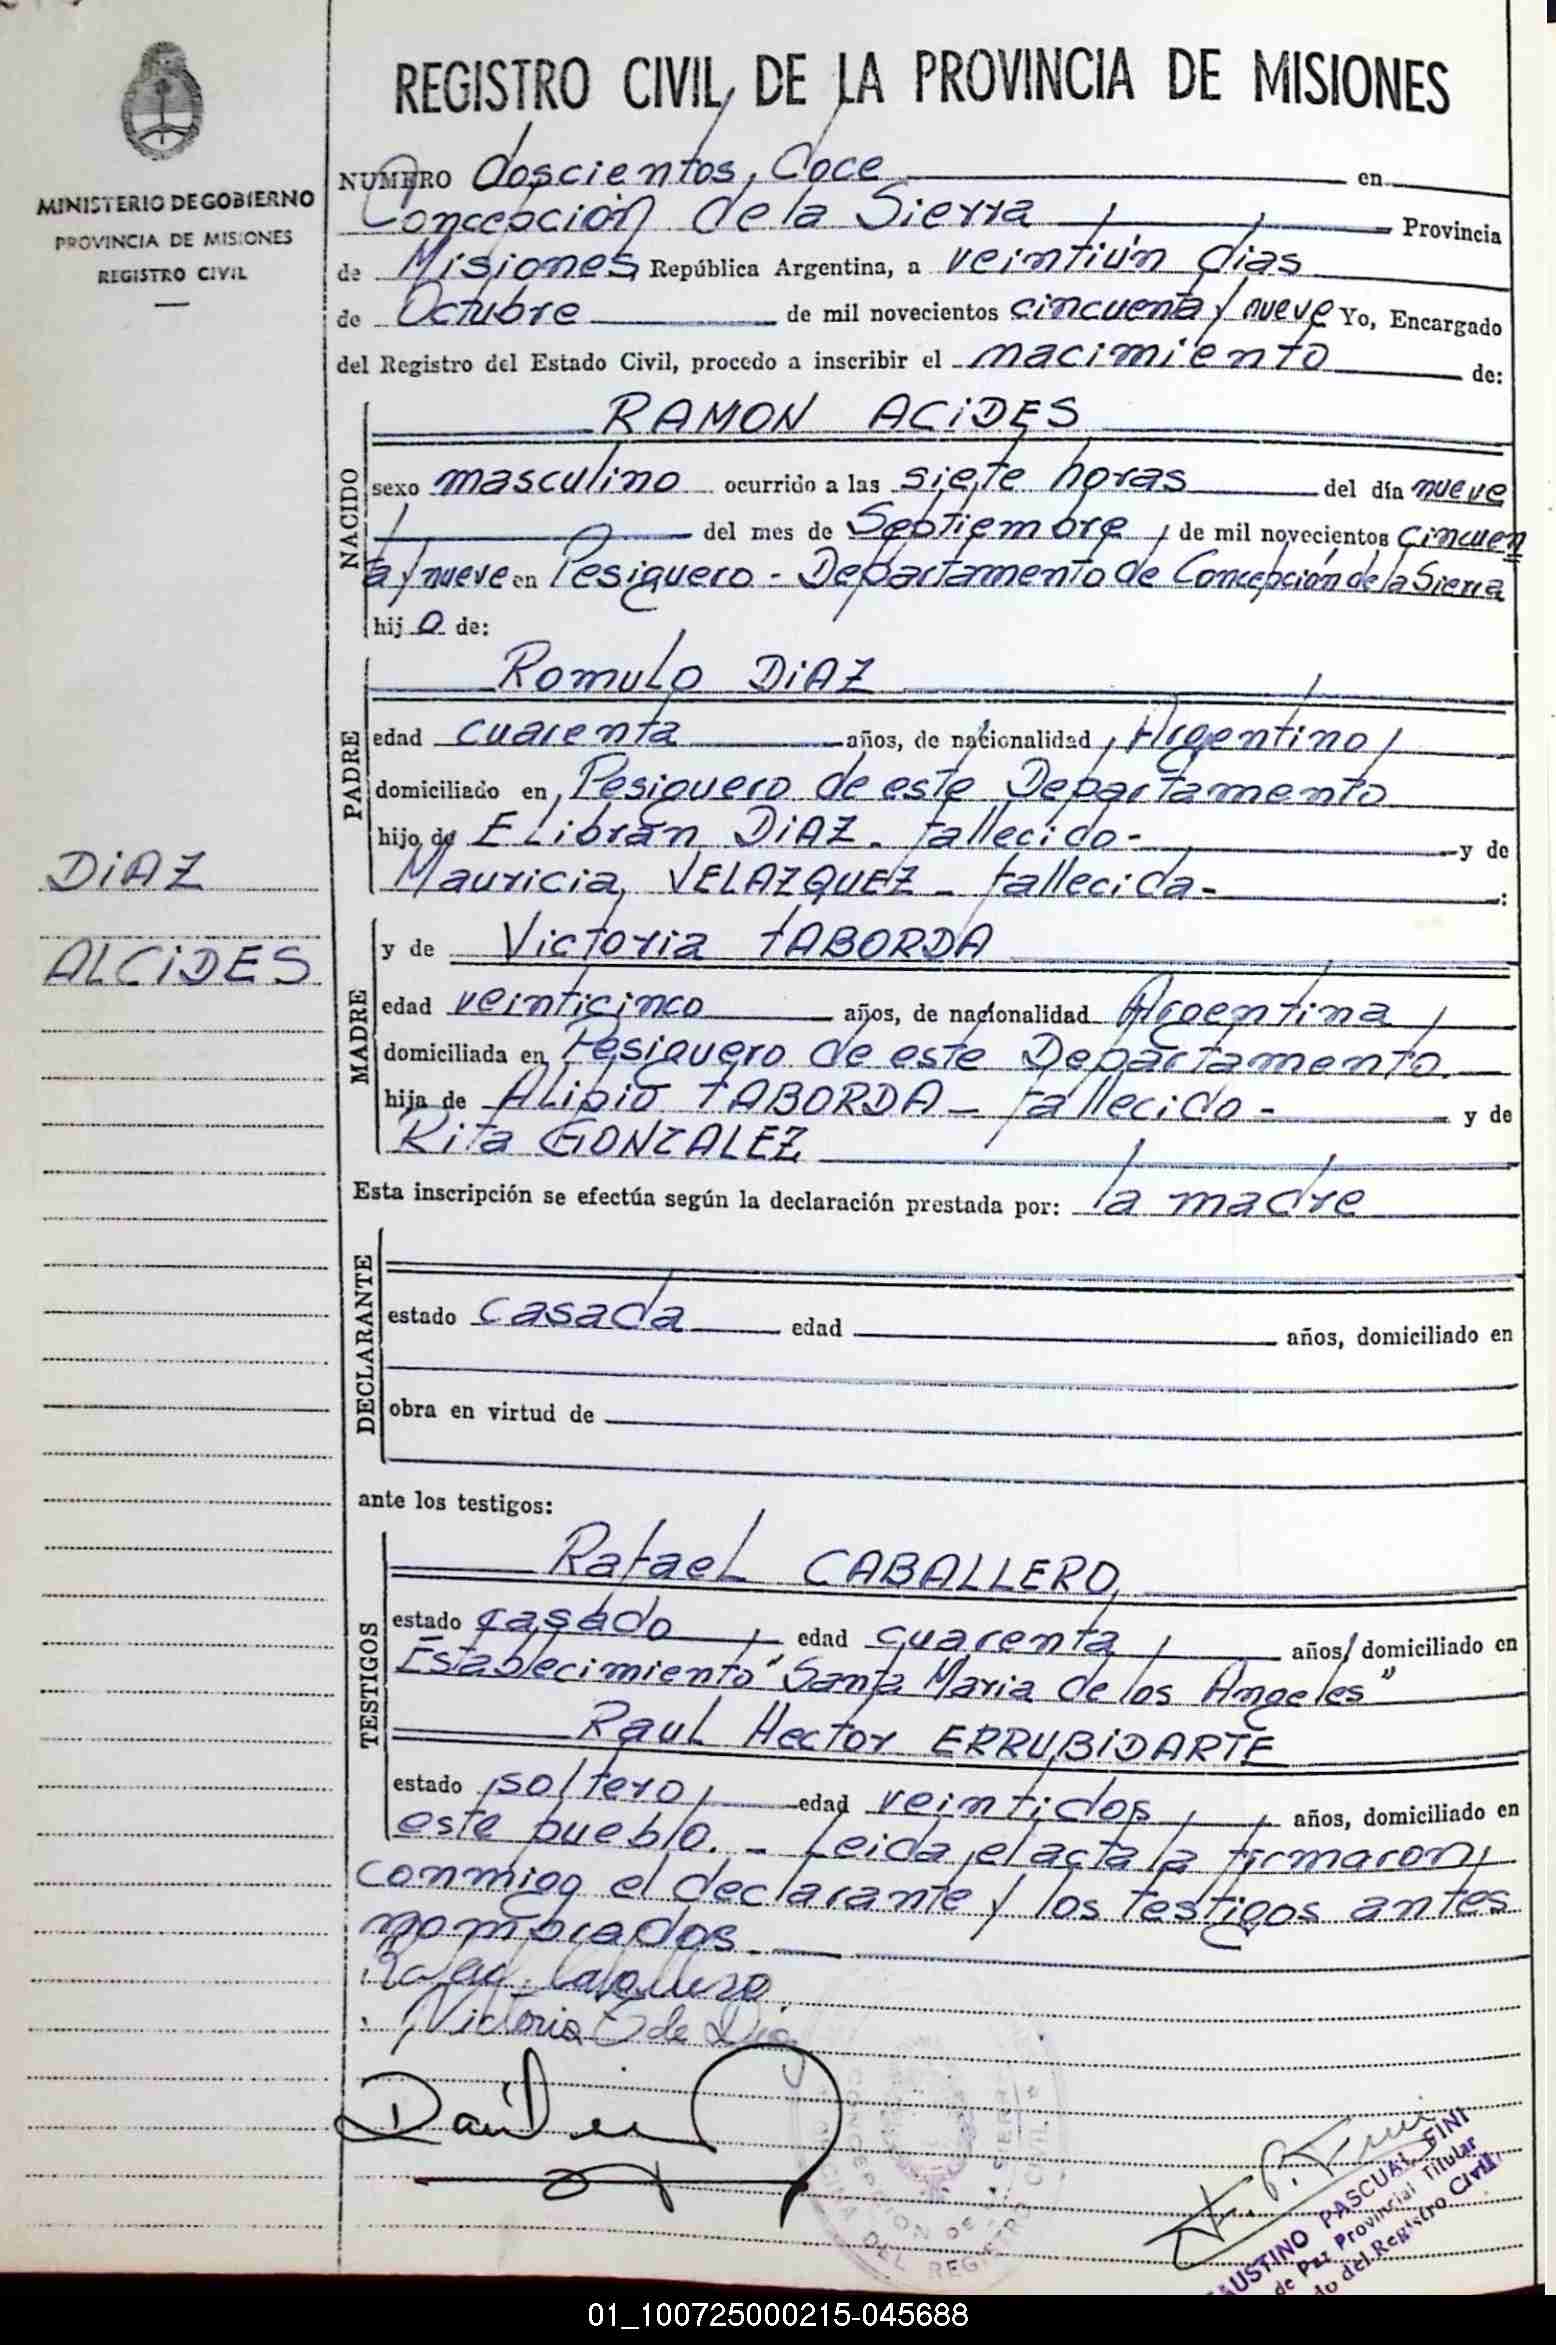 MINISTERIO DE GOBIERNO
PROVINCIA DE MISIONES
REGISTRO CIVIL
DiAZ
ALCiDES
REGISTRO CIVIL DE LA PROVINCIA DE MISIONES
NUMERO doscientos doce en
Concepción de la Sierra Provincia
de Misiones República Argentina, a veintiún dias
de Octubre de mil novecientos cincuenta y nueve Yo, Encargado
del Registro del Estado Civil, procedo a inscribir el nacimiento de:
NACIDO
RAMON ACiDES
sexo masculino ocurrido a las siete horas del día nueve
del mes de Septiembre de mil novecientos cincuen
ta y nueve en Pesiguero - Departamento de Concepción de la Sierra
hijo de:
PADRE
Romulo DiAZ
edad cuarenta años, de nacionalidad Argentino
domiciliado en Pesiguero de este Departamento
hijo de Elibran DiAZ - fallecido - y de
Mauricia VELAZQUEZ - fallecida - :
MADRE
y de Victoria TABORDA
edad veinticinco años, de nacionalidad Argentina
domiciliada en Pesiguero de este Departamento.
hija de Alipio TABORDA - fallecido - y de
Rita GONZALEZ
Esta inscripción se efectúa según la declaración prestada por: la madre
DECLARANTE
estado casada edad años, domiciliado en
obra en virtud de
ante los testigos:
TESTIGOS
Rafael CABALLERO
estado casado edad cuarenta años, domiciliado en
Establecimiento "Santa Maria de los Angeles"
Raul Hector ERRUBiDARTE
estado soltero edad veintidos años, domiciliado en
este pueblo. - Leida el acta la firmaron
conmigo el declarante y los testigos antes
nombrados.
Rafael Caballero
Victoria T de Diaz
CONCEPCION DE LA SIERRA
OFICINA DEL REGISTRO CIVIL
FAUSTINO PASCUAL FINI
de Paz Provincial Titular
do del Registro Civil
01_100725000215-045688